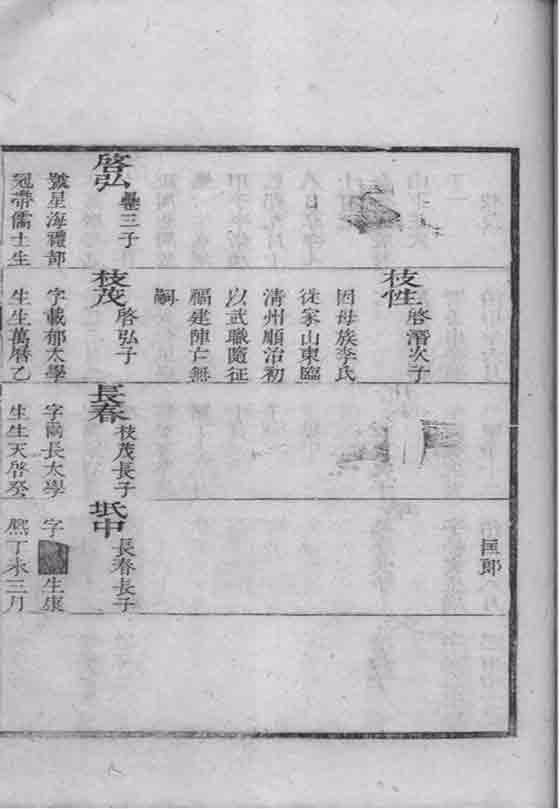 啓弘
三子
號星海禮部
冠帶儒士生
枝性
啓濬次子
因母族李氏
徙家山東臨
清州順治初
以武職隨征
福建陣亡無
嗣
枝茂
啓弘子
字載郁太學
生生萬曆乙
長春
枝茂長子
字爾長太學
生生天啓癸
匡郎
坻中
長春長子
字
生康
熙丁未三月